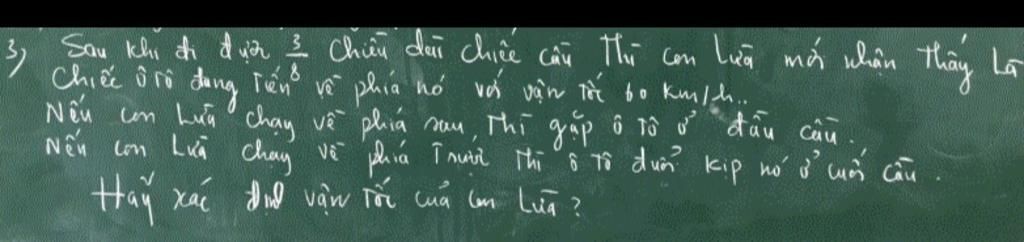 3) Sau khi đi được 3/8 chiều dài chiếc cầu thì con lừa mới nhận thấy là
chiếc ô tô đang tiến về phía nó với vận tốc 60 km/h..
Nếu con lừa chạy về phía sau, thì gặp ô tô ở đầu cầu.
Nếu con lừa chạy về phía trước thì ô tô đuổi kịp nó ở cuối cầu.
Hãy xác định vận tốc của con lừa?